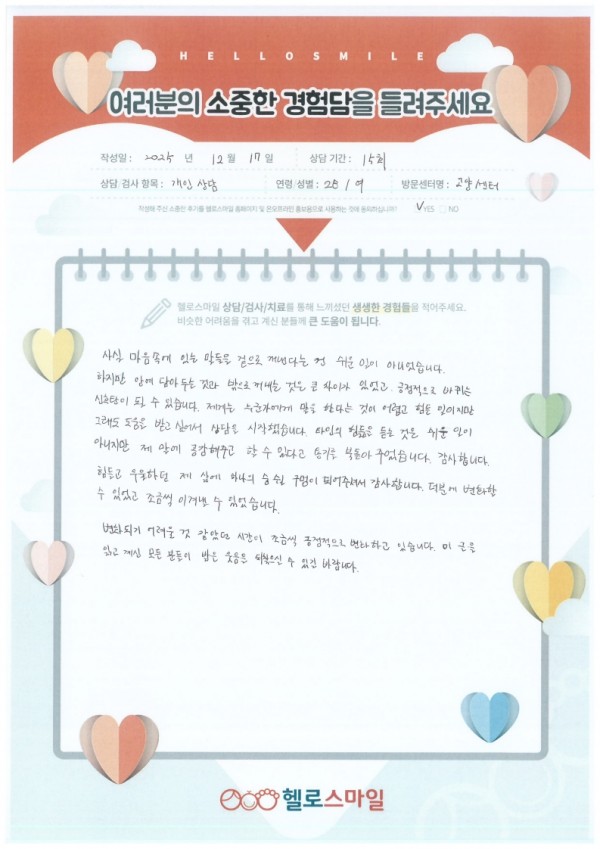 HELLOSMILE
여러분의 소중한 경험담을 들려주세요
작성일 : 2025 년 12 월 17 일 상담 기간 : 15회
상담/검사 항목 : 개인 상담 연령/성별 : 28 / 여 방문센터명 : 고양센터
작성해 주신 소중한 후기를 헬로스마일 홈페이지 및 온오프라인 홍보용으로 사용하는 것에 동의하십니까? ✓YES NO
헬로스마일 상담/검사/치료를 통해 느끼셨던 생생한 경험들을 적어주세요.
비슷한 어려움을 겪고 계신 분들께 큰 도움이 됩니다.
사실 마음속에 있는 말들을 겉으로 꺼낸다는 건 쉬운 일이 아니었습니다.
하지만 안에 담아두는 것과 밖으로 꺼내는 것은 큰 차이가 있었고 긍정적으로 바뀌는
신호탄이 될 수 있습니다. 제게는 누군가에게 말을 한다는 것이 어렵고 힘든 일이지만
그래도 도움을 받고 싶어서 상담을 시작했습니다. 타인의 힘듦을 듣는 것은 쉬운 일이
아니지만 제 말에 공감해주고 할 수 있다고 용기를 북돋아 주었습니다. 감사합니다.
힘들고 우울하던 제 삶에 하나의 숨쉴 구멍이 되어주셔서 감사합니다. 덕분에 변화할
수 있었고 조금씩 이겨낼 수 있었습니다.
변화되기 어려울 것 같았던 시간이 조금씩 긍정적으로 변화하고 있습니다. 이 글을
읽고 계신 모든 분들이 밝은 웃음을 되찾으실 수 있길 바랍니다.
헬로스마일